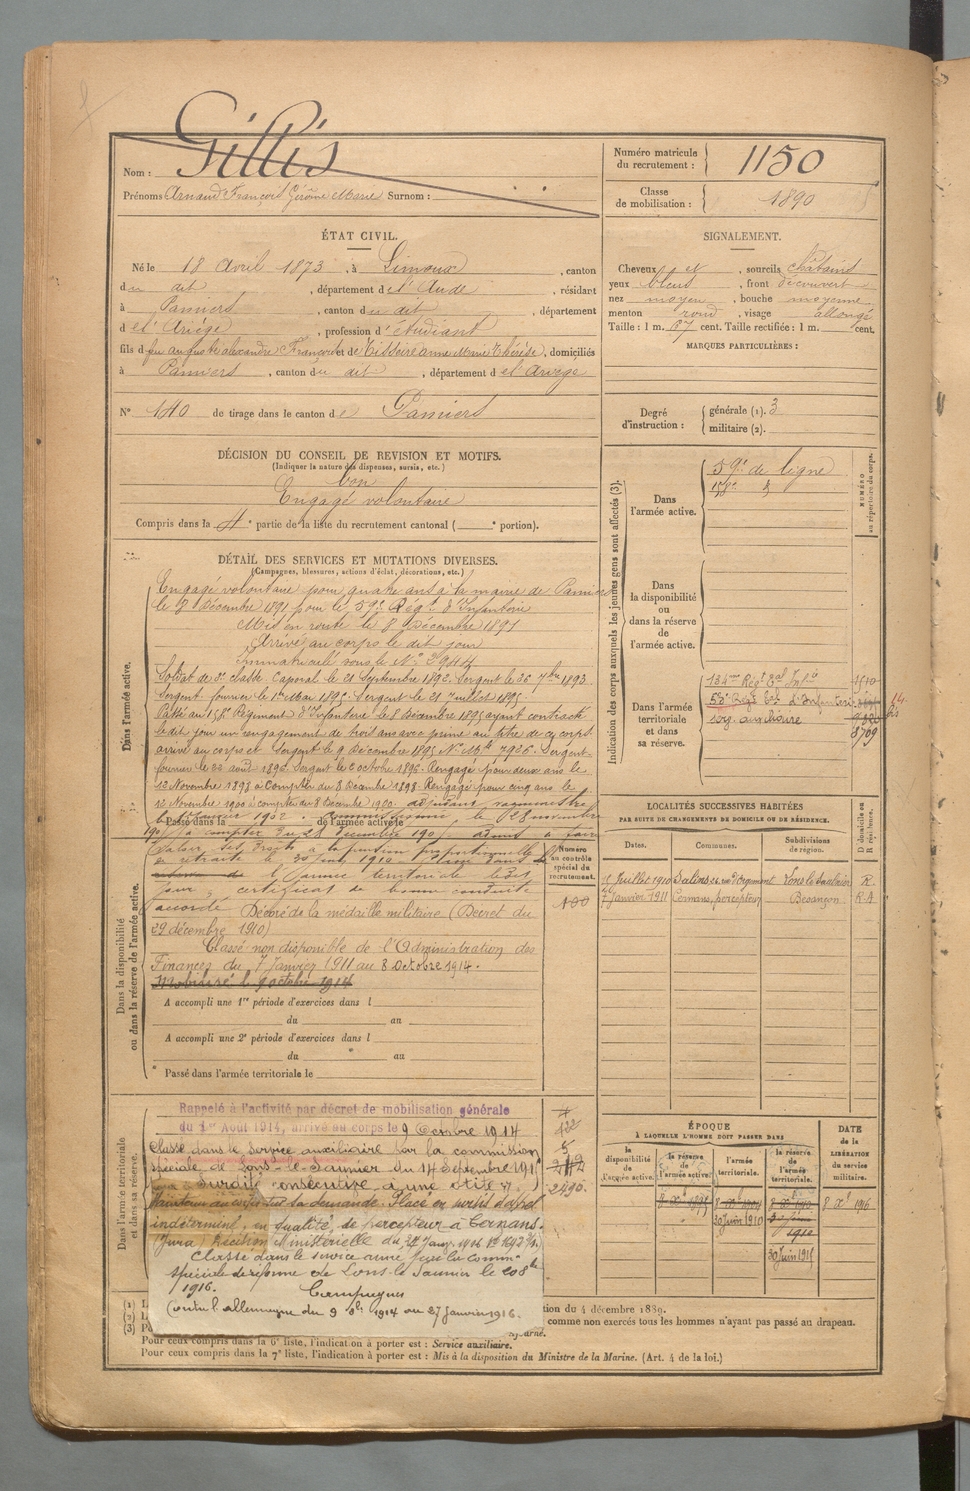 Gillis
Nom :
Prénoms Arnaud François Gérôme Marie Surnom :
Numéro matricule du recrutement : 1150
Classe de mobilisation : 1890
ÉTAT CIVIL.
Né le 18 Avril 1873, à Limoux, canton
du dit, département de l'Aude, résidant
à Pamiers, canton du dit, département
de l'Ariège, profession d'étudiant
fils de feu auguste alexandre François et de Tisseire anne Marie Thérèse, domiciliés
à Pamiers, canton du dit, département de l'Ariège
N° 140 de tirage dans le canton de Pamiers
SIGNALEMENT.
Cheveux et, sourcils châtains
yeux bleus, front découvert
nez moyen, bouche moyenne
menton rond, visage allongé
Taille : 1 m. 67 cent. Taille rectifiée : 1 m. cent.
MARQUES PARTICULIÈRES :
Degré d'instruction : générale (1). 3
militaire (2).
DÉCISION DU CONSEIL DE REVISION ET MOTIFS.
(Indiquer la nature des dispenses, sursis, etc.)
bon
Engagé volontaire
Compris dans la 4e partie de la liste du recrutement cantonal ( e portion).
DÉTAIL DES SERVICES ET MUTATIONS DIVERSES.
(Campagnes, blessures, actions d'éclat, décorations, etc.)
Dans l'armée active.
Engagé volontaire pour quatre ans à la mairie de Pamiers
le 8 Décembre 1891 pour le 59e Régt d'Infanterie
Mis en route le 8 Décembre 1891
Arrivé au corps le dit jour
Immatriculé sous le N° 2944
Soldat de 2e classe Caporal le 21 Septembre 1892. Sergent le 26 7bre 1893
Sergent fourrier le 1er Mai 1895. Sergent le 21 Juillet 1895.
Passé au 158e Régiment d'Infanterie le 8 Décembre 1895 ayant contracté
le dit jour un rengagement de trois ans avec prime au titre de ce corps
arrivé au corps et Sergent le 9 Décembre 1895 N° Mle 7926. Sergent
fourrier le 22 août 1896. Sergent le 2 octobre 1896. Rengagé pour deux ans le
12 Novembre 1898 à compter du 8 Décembre 1898. Rengagé pour cinq ans le
12 Novembre 1900 à compter du 8 Décembre 1900. adjudant vaguemestre
1902. Commissionné le 28 novembre
Passé dans la de l'armée active le
190 à compter du 28 Décembre 190 admis à faire
valoir ses droits à la pension proportionnelle
en retraite le 30 juin 1910 Classé dans
l'armée territoriale le dit
jour ; certificat de bonne conduite
accordé Décoré de la médaille militaire (Décret du
29 décembre 1910)
Classé non disponible de l'Administration des
Finances du 7 Janvier 1911 au 8 Octobre 1914.
Mobilisé le 9 octobre 1914
Numéro au contrôle spécial du recrutement.
100
Dans la disponibilité ou dans la réserve de l'armée active.
A accompli une 1re période d'exercices dans l
du au
A accompli une 2e période d'exercices dans l
du au
Passé dans l'armée territoriale le
Dans l'armée territoriale et dans sa réserve.
Rappelé à l'activité par décret de mobilisation générale
du 1er Août 1914, arrivé au corps le 9 Octobre 1914
Classé dans le service auxiliaire par la commission
spéciale de Lons-le-Saunier du 14 Septembre 191
Surdité consécutive à une otite
Maintenu au corps sur sa demande. Placé en sursis d'appel
indéterminé, en qualité de percepteur à Cernans.
(Jura) Décision Ministérielle du 24 Janv. 1916
Classé dans le service armé par la commn
spéciale de réforme de Lons-le-Saunier le
1916.
Campagnes
Contre l'allemagne du 9 8bre 1914 au 27 Janvier 1916.
5
2490.
Indication des corps auxquels les jeunes gens sont affectés (3).
NUMÉRO au répertoire du corps.
Dans l'armée active.
59e de ligne
158e d
Dans la disponibilité ou dans la réserve de l'armée active.
Dans l'armée territoriale et dans sa réserve.
134me Régt Tal Infie
53e Régt Tal d'Infanterie
serv. auxiliaire
8709
LOCALITÉS SUCCESSIVES HABITÉES
PAR SUITE DE CHANGEMENTS DE DOMICILE OU DE RÉSIDENCE.
Dates. Communes. Subdivisions de région. D domicile ou R résidence.
Juillet 1910 Salins, rue d'Orgemont Lons le Saulnier R.
7 Janvier 1911 Cernans, percepteur Besançon R.A
ÉPOQUE
À LAQUELLE L'HOMME DOIT PASSER DANS
la disponibilité de l'armée active. la réserve de l'armée active. l'armée territoriale. la réserve de l'armée territoriale.
DATE de la LIBÉRATION du service militaire.
8 Xe 1895 8 Xe 1904 8 Xe 1910 8 Xe 1916
30 Juin 1910
30 Juin 1915
tion du 4 décembre 1889.
comme non exercés tous les hommes n'ayant pas passé au drapeau.
Pour ceux compris dans la 6e liste, l'indication à porter est : Service auxiliaire.
Pour ceux compris dans la 7e liste, l'indication à porter est : Mis à la disposition du Ministre de la Marine. (Art. 4 de la loi.)